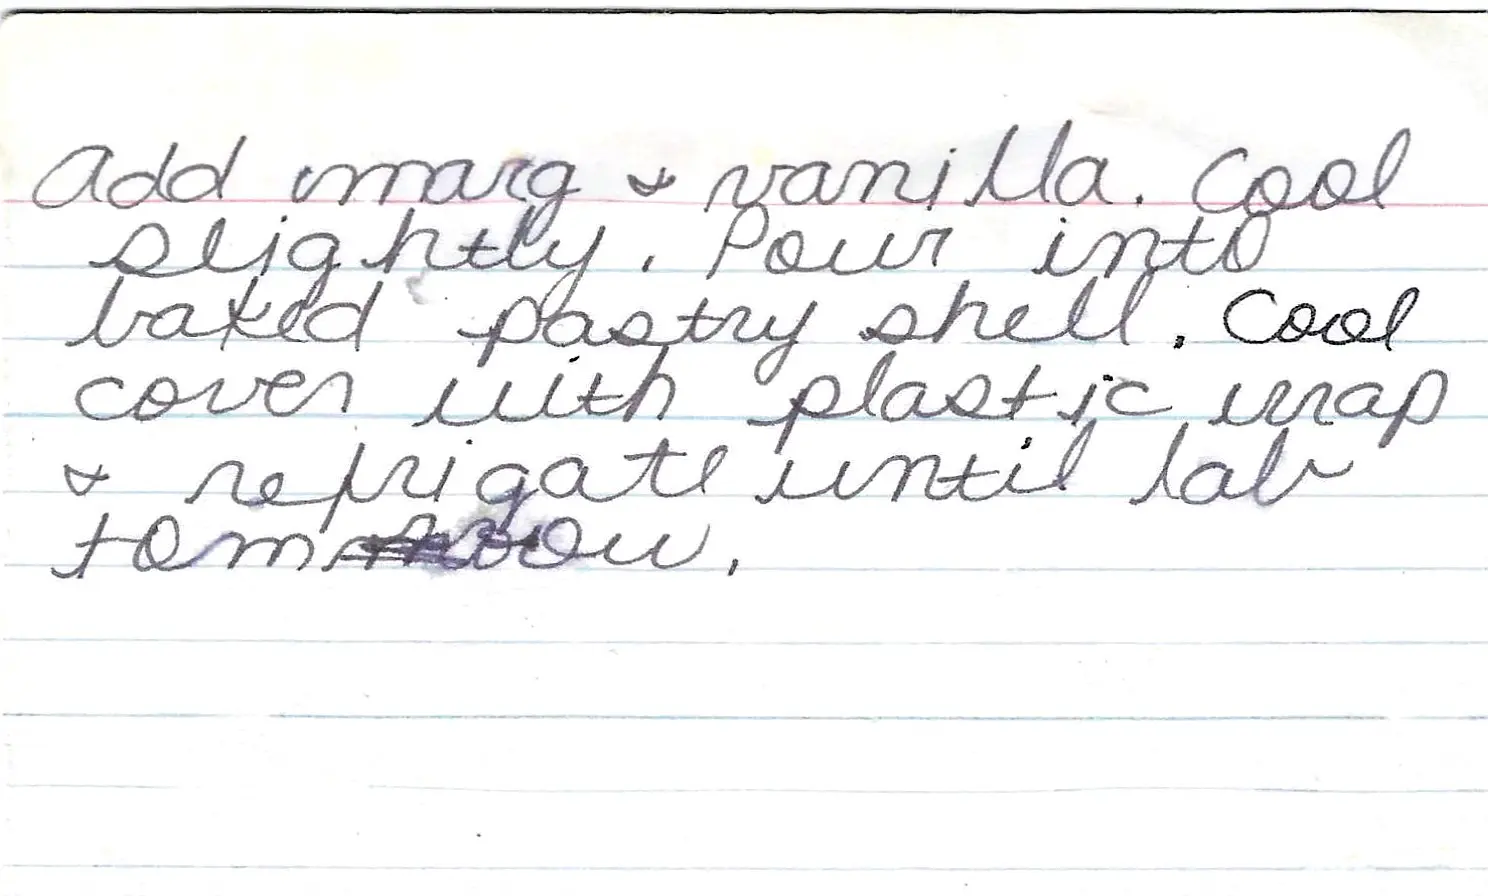 Add marg & vanilla. Cool
slightly. Pour into
baked pastry shell. Cool
cover with plastic wrap
& refrigate until lab
tomorrow.